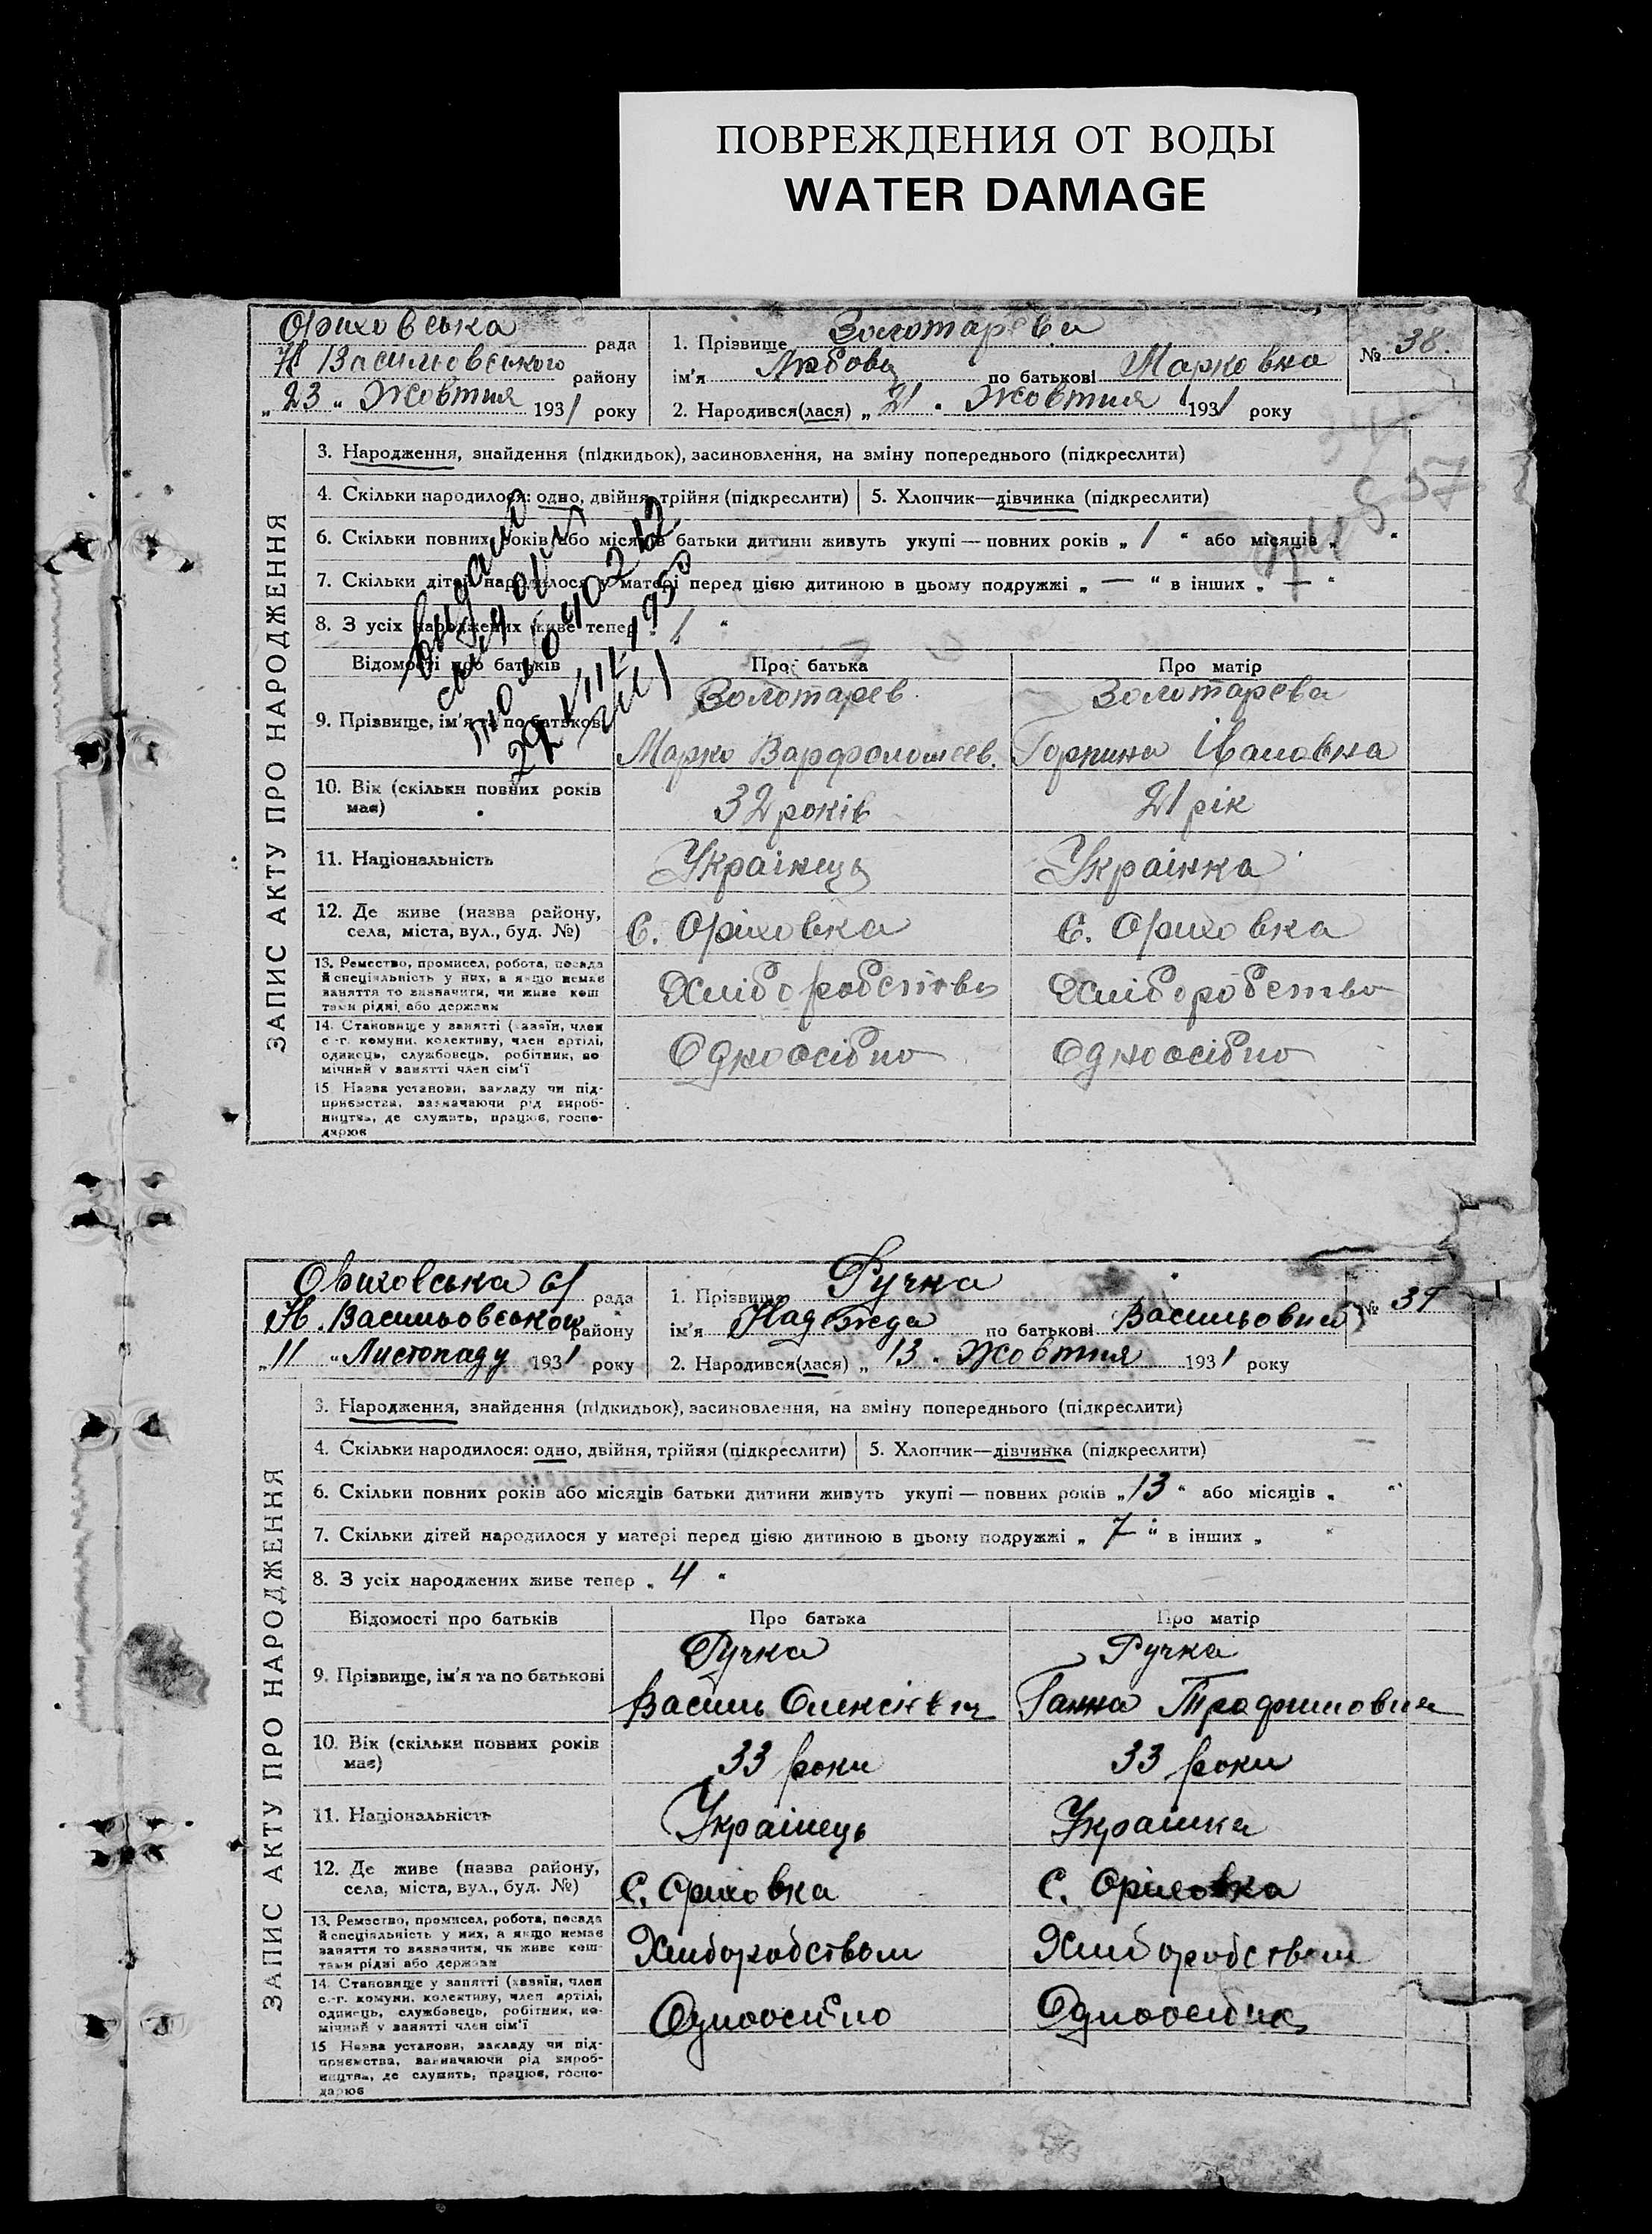 ПОВРЕЖДЕНИЯ ОТ ВОДЫ
WATER DAMAGE
Ориховська рада
Н Васильовського району
„23“ Жовтня 1931 року
1. Прізвище Золотарева
ім'я Любовь по батькові Марковна
2. Народився(лася) „21“ Жовтня 1931 року
№ 38.
ЗАПИС АКТУ ПРО НАРОДЖЕННЯ
3. Народження, знайдення (підкидьок), засиновлення, на зміну попереднього (підкреслити)
4. Скільки народилося: одно, двійня, трійня (підкреслити) 5. Хлопчик—дівчинка (підкреслити)
6. Скільки повних років або місяців батьки дитини живуть укупі — повних років „1“ або місяців „ “
7. Скільки дітей народилося у матері перед цією дитиною в цьому подружжі „—“ в інших „—“
8. З усіх народжених живе тепер „1“
видано
29 VIII 1950
Відомості про батьків Про батька Про матір
9. Прізвище, ім'я та по батькові
Золотарев Золотарева
Марко Варфоломеев. Горпина Івановна
10. Вік (скільки повних років має) 32 років 21 рік
11. Національність Українець Українка
12. Де живе (назва району, села, міста, вул., буд. №) С. Ориховка С. Ориховка
13. Ремество, промисел, робота, посада й спеціяльність у них, а якщо немає заняття то зазначити, чи живе коштами рідні або держави Хліборобство Хліборобство
14. Становище у занятті (хазяїн, член с.-г. комуни, колективу, член артілі, одинець, службовець, робітник, помічний у занятті член сім'ї Одноосібно Одноосібно
15. Назва установи, закладу чи підприємства, зазначаючи рід виробництва, де служить, працює, господарює
Ориховська с/ рада
Н. Васильовського району
„11“ Листопаду 1931 року
1. Прізвище Ручка
ім'я Надежда по батькові Васильовна
2. Народився(лася) „13“ Жовтня 1931 року
№ 39
ЗАПИС АКТУ ПРО НАРОДЖЕННЯ
3. Народження, знайдення (підкидьок), засиновлення, на зміну попереднього (підкреслити)
4. Скільки народилося: одно, двійня, трійня (підкреслити) 5. Хлопчик—дівчинка (підкреслити)
6. Скільки повних років або місяців батьки дитини живуть укупі — повних років „13“ або місяців „ “
7. Скільки дітей народилося у матері перед цією дитиною в цьому подружжі „7“ в інших „ “
8. З усіх народжених живе тепер „4“
Відомості про батьків Про батька Про матір
9. Прізвище, ім'я та по батькові
Ручка Ручка
Василь Олексієвич Ганна Трофимовна
10. Вік (скільки повних років має) 33 роки 33 роки
11. Національність Українець Українка
12. Де живе (назва району, села, міста, вул., буд. №) С. Ориховка С. Оріховка
13. Ремество, промисел, робота, посада й спеціяльність у них, а якщо немає заняття то зазначити, чи живе коштами рідні або держави Хліборобством Хліборобством
14. Становище у занятті (хазяїн, член с.-г. комуни, колективу, член артілі, одинець, службовець, робітник, помічний у занятті член сім'ї Одноосібно Одноосібно
15 Назва установи, закладу чи підприємства, зазначаючи рід виробництва, де служить, працює, господарює